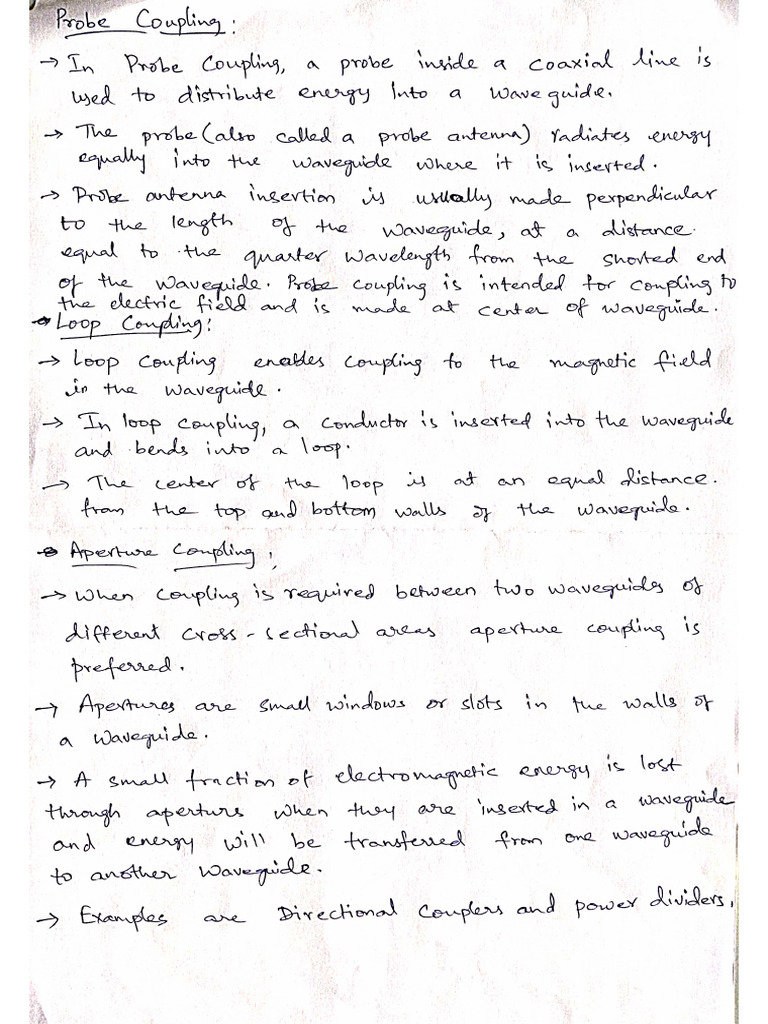 Probe Coupling:
→ In Probe Coupling, a probe inside a coaxial line is
used to distribute energy Into a waveguide.
→ The probe (also called a probe antenna) radiates energy
equally into the waveguide where it is inserted.
→ Probe antenna insertion is usually made perpendicular
to the length of the waveguide, at a distance.
equal to the quarter wavelength from the shorted end
of the waveguide. Probe coupling is intended for coupling to
the electric field and is made at center of waveguide.
Loop Coupling:
→ Loop Coupling enables Coupling to the magnetic field
in the waveguide.
→ In loop coupling, a conductor is inserted into the waveguide
and bends into a loop.
→ The center of the loop is at an equal distance.
from the top and bottom walls of the waveguide.
Aperture Coupling;
→ When coupling is required between two waveguides of
different cross-sectional areas aperture coupling is
preferred.
→ Apertures are small windows or slots in the walls of
a waveguide.
→ A small fraction of electromagnetic energy is lost
through aperturs when they are inserted in a waveguide
and energy will be transferred from one waveguide
to another waveguide.
→ Examples are Directional Couplers and power dividers.